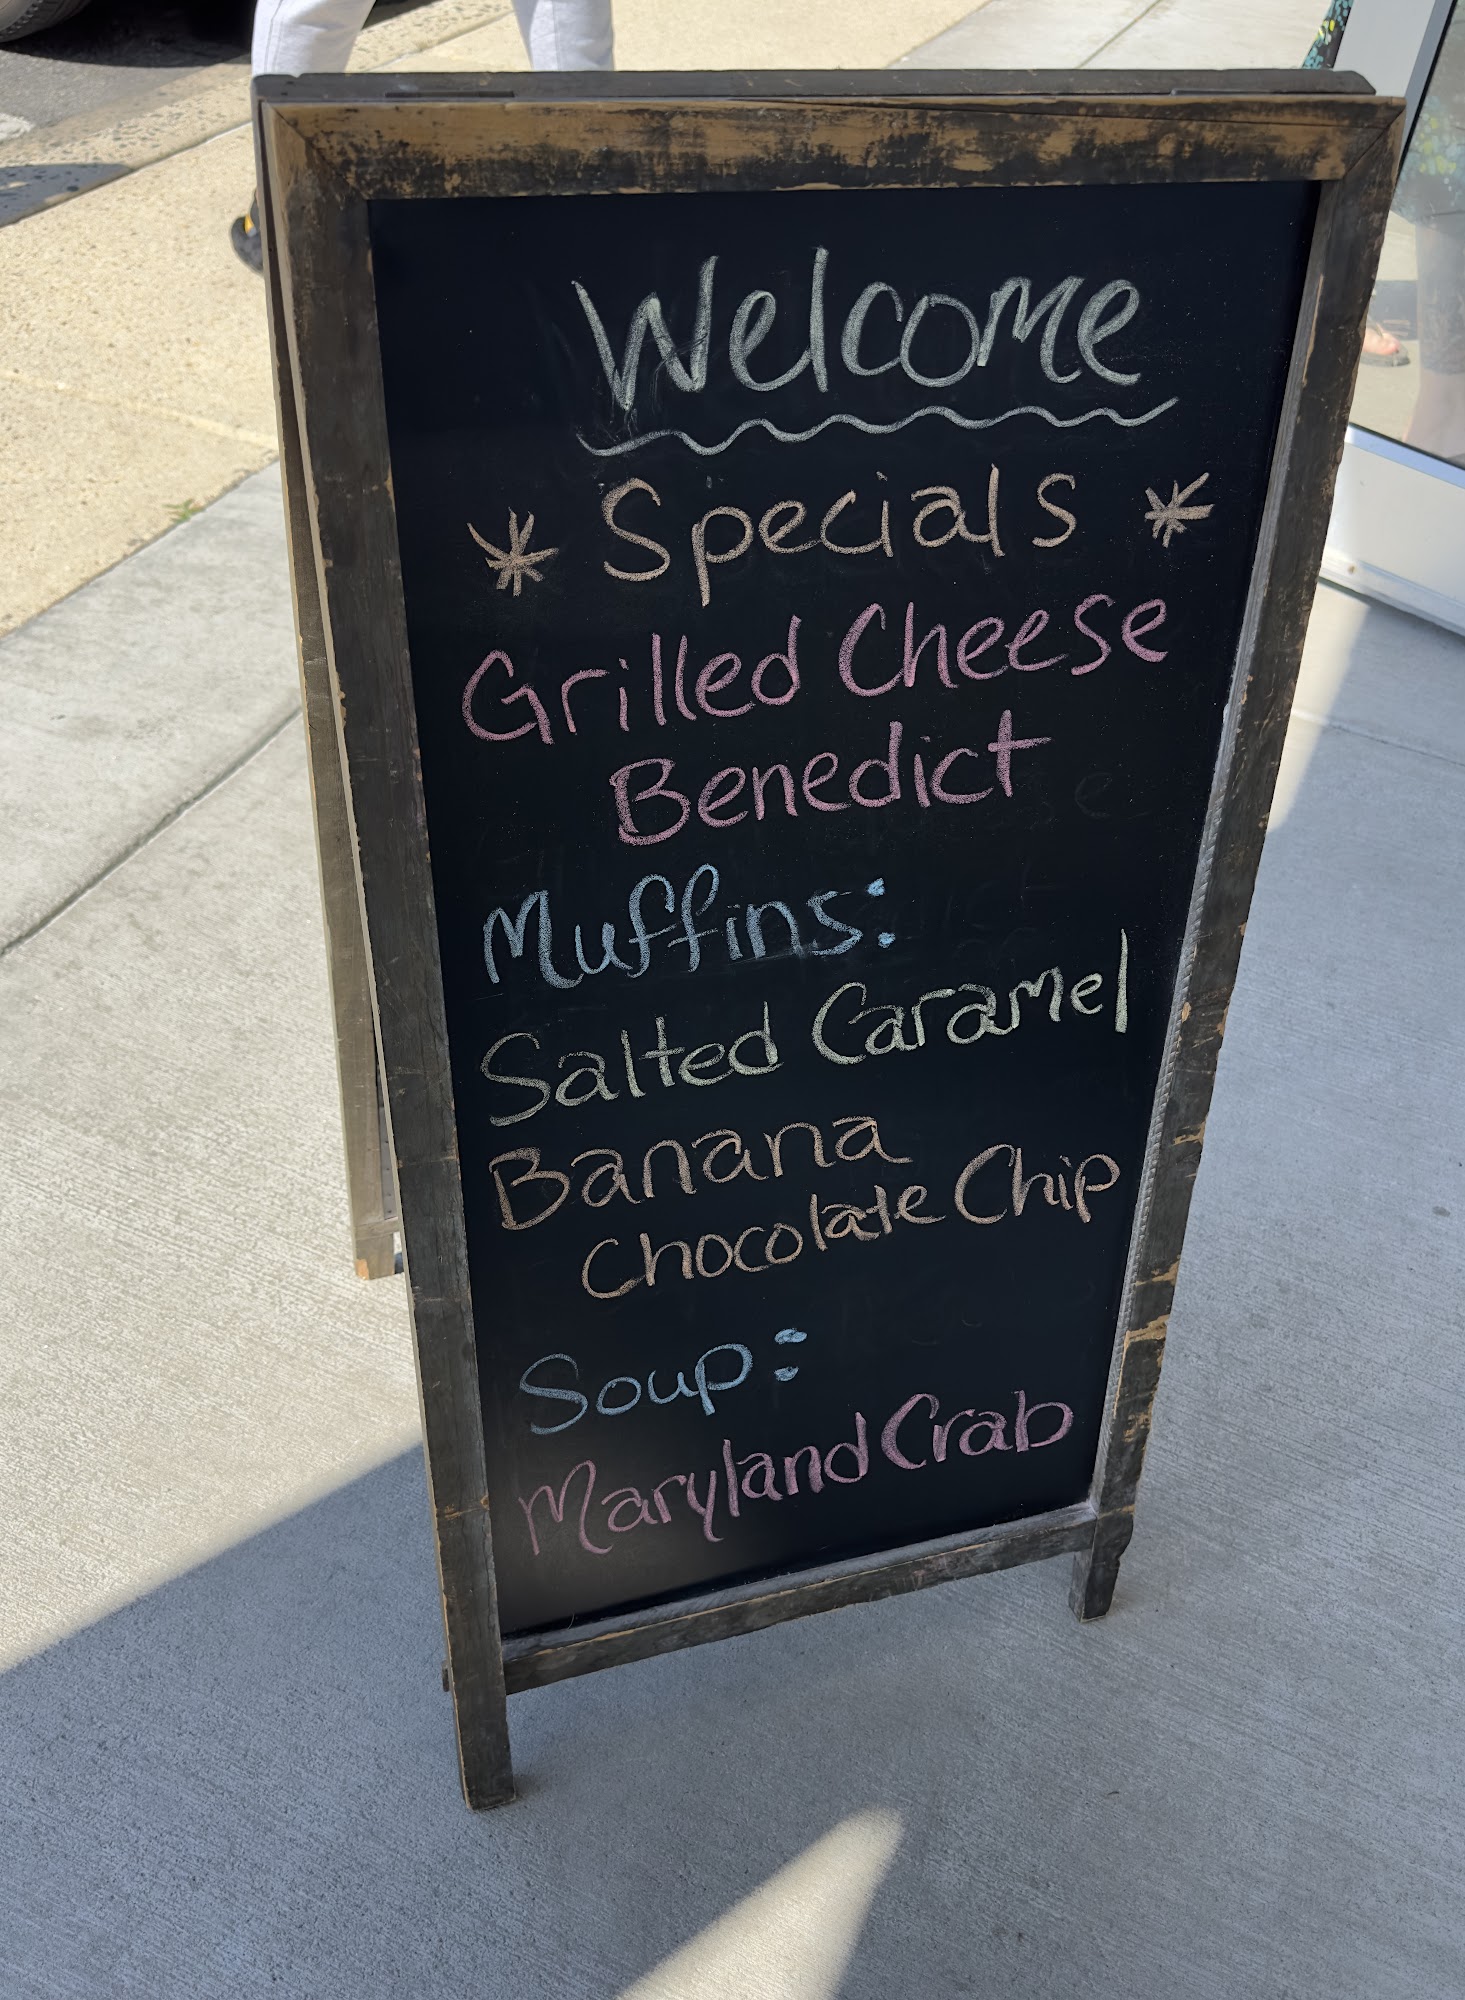 Welcome
* Specials *
Grilled Cheese
Benedict
Muffins:
Salted Caramel
Banana
Chocolate Chip
Soup:
Maryland Crab